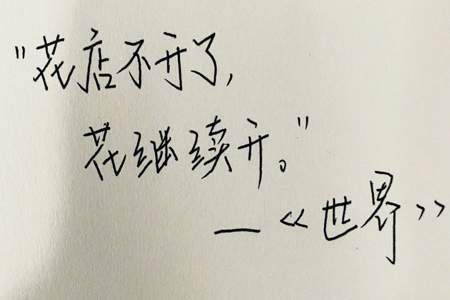 "花店不开了,
花继续开。"
—《世界》